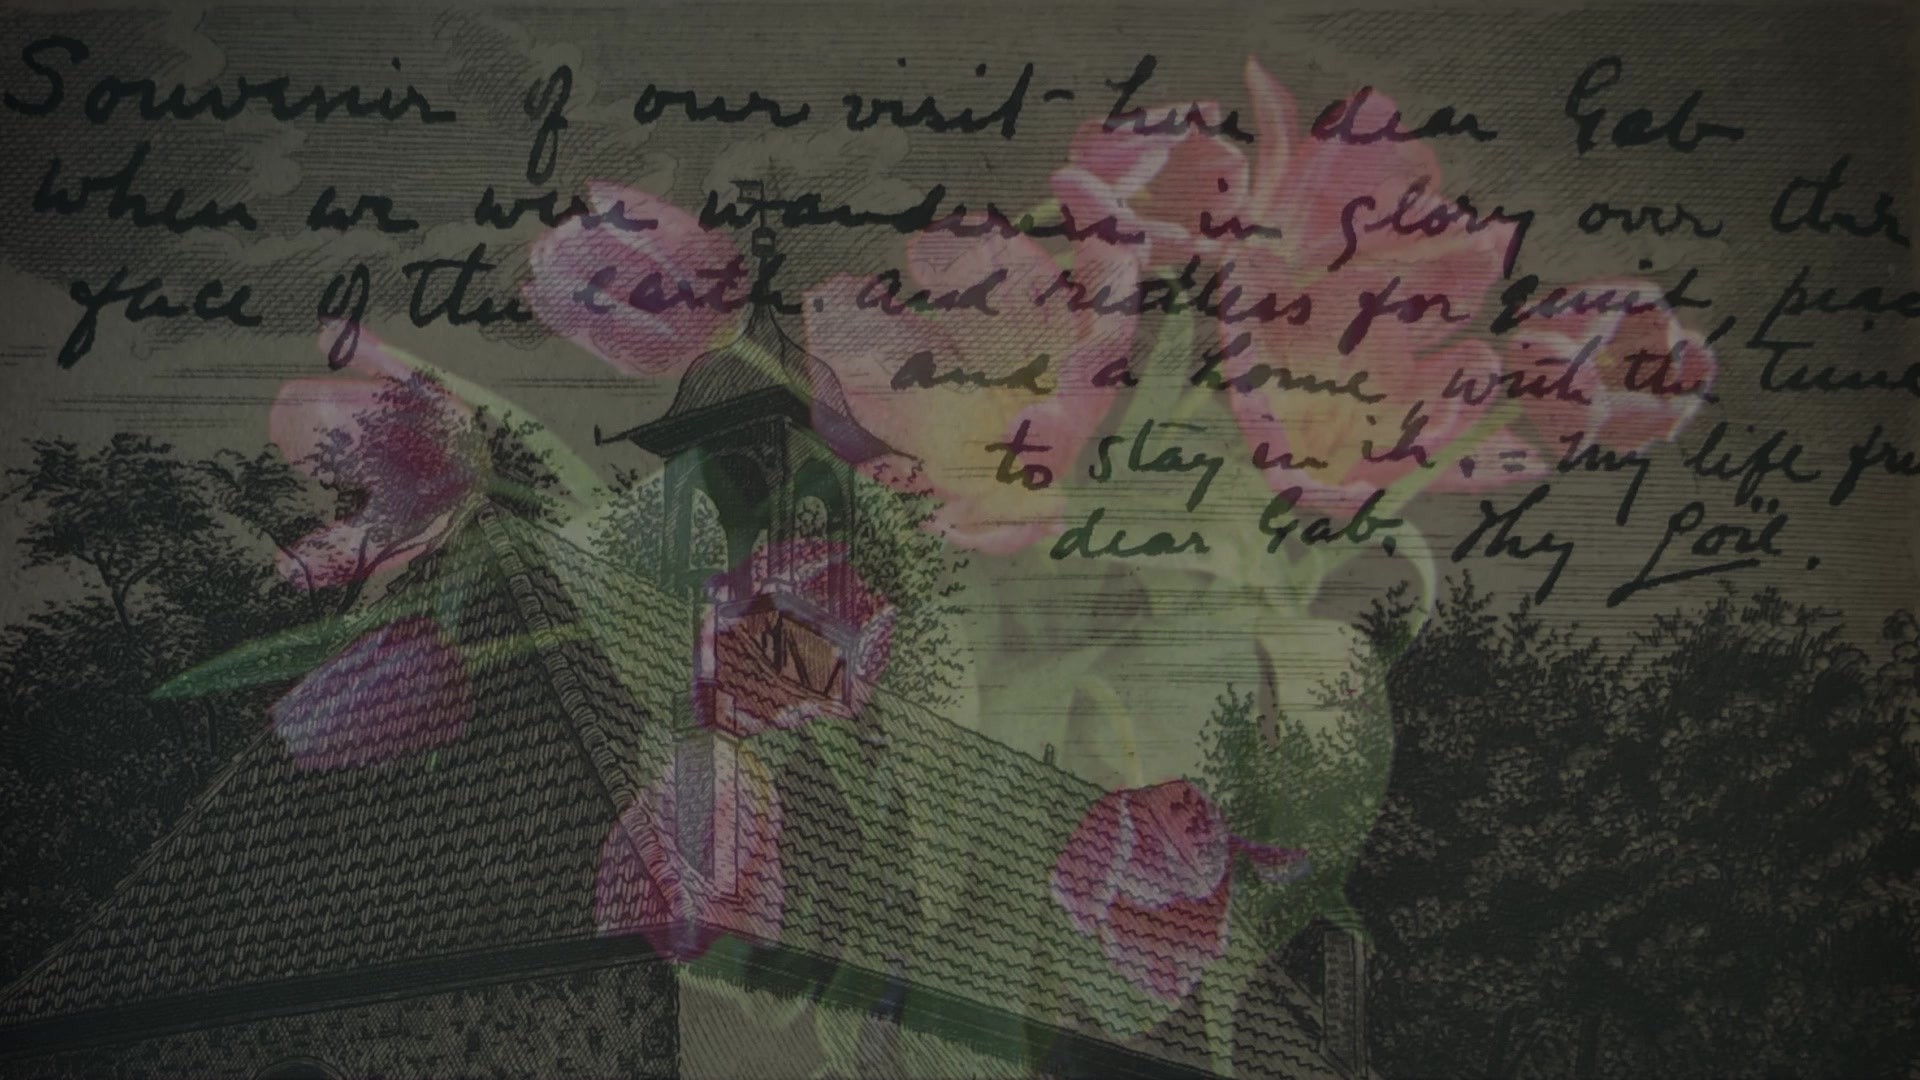 Souvenir of our visit - here dear Gab
when we were wanderers in glory over this
face of the earth. and restless for quiet, peac
and a home, with the time
to stay in it. = my life fri
dear Gab. Thy Loïe.